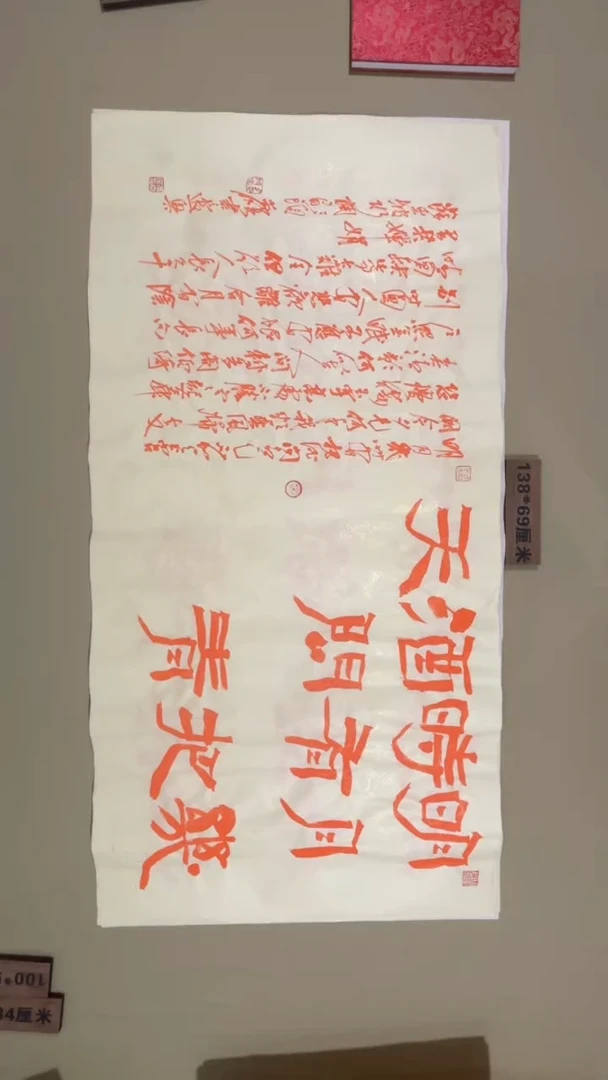 明月幾
時有把
酒問青
天
明月幾時有把酒問青天不知天上宮
闕今夕是何年我欲乘風歸去又
恐瓊樓玉宇高處不勝寒起舞
弄清影何似在人間轉朱閣低綺
戶照無眠不應有恨何事長向
別時圓人有悲歡離合月有陰
晴圓缺此事古難全但願人長久千
里共嬋娟
138*69厘米
100*
34厘米